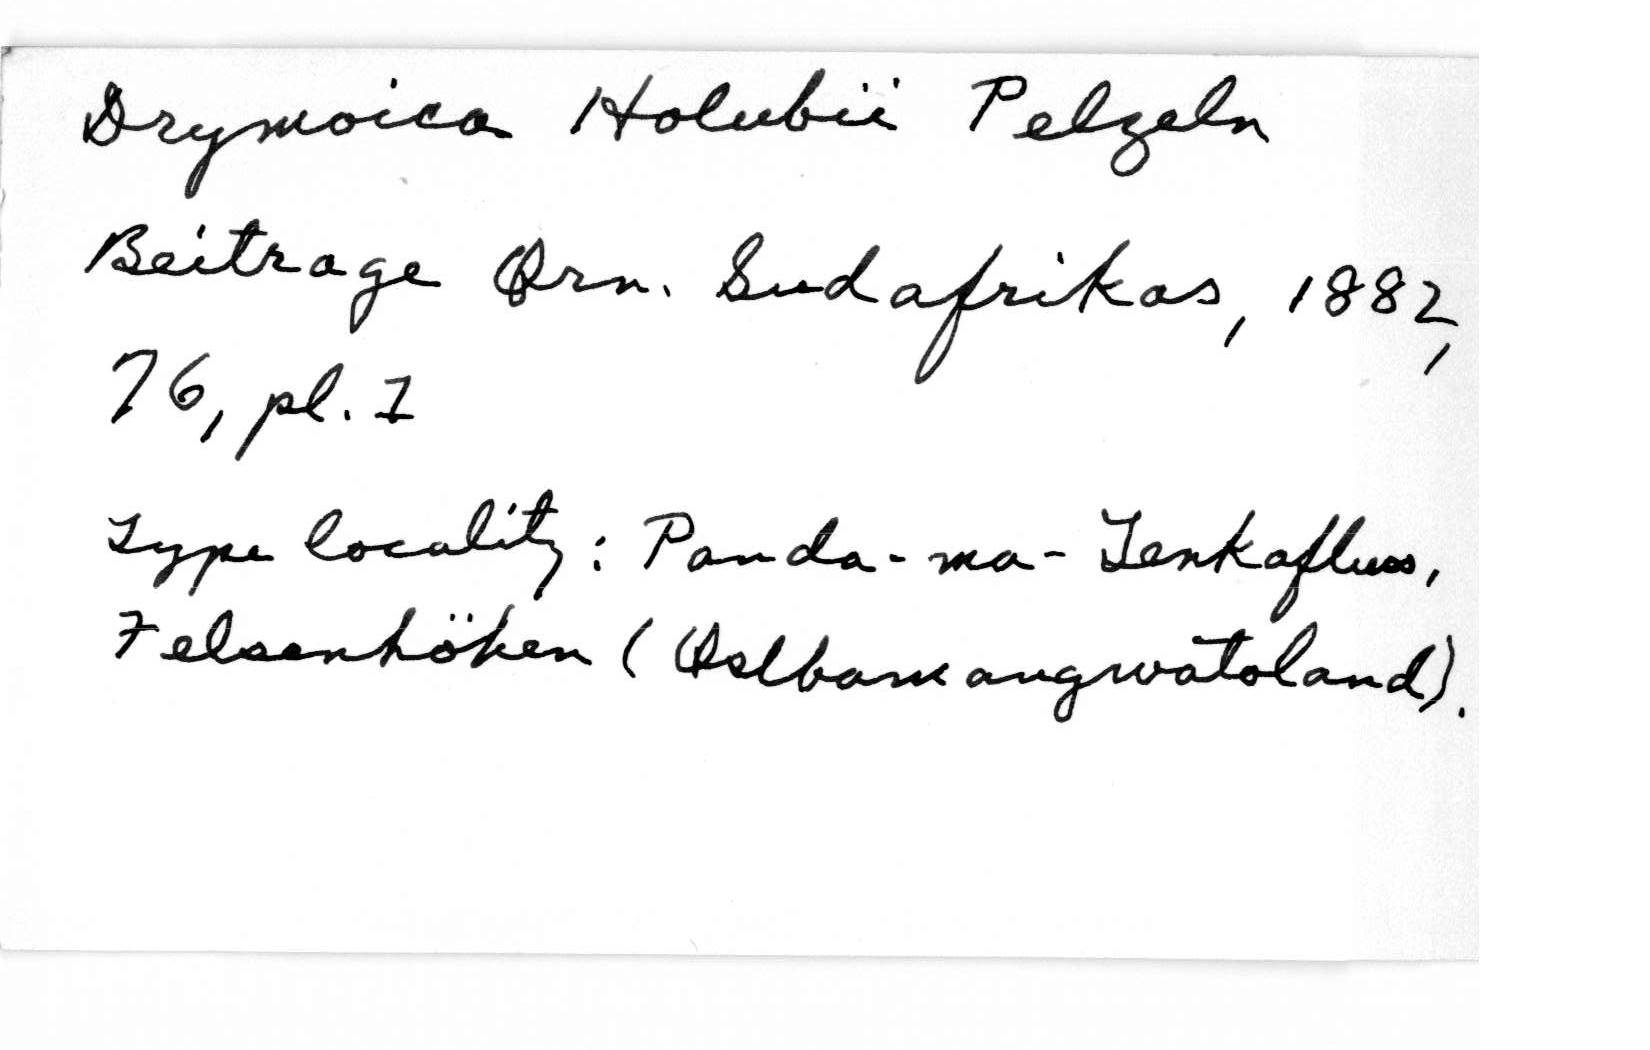 Drymoica Holubii Pelzeln
Beitrage Orn. Sudafrikas, 1882,
76, pl. I
Type locality: Panda-ma-Tenkafluss,
Felsenhöhen (Ostbamangwatoland).